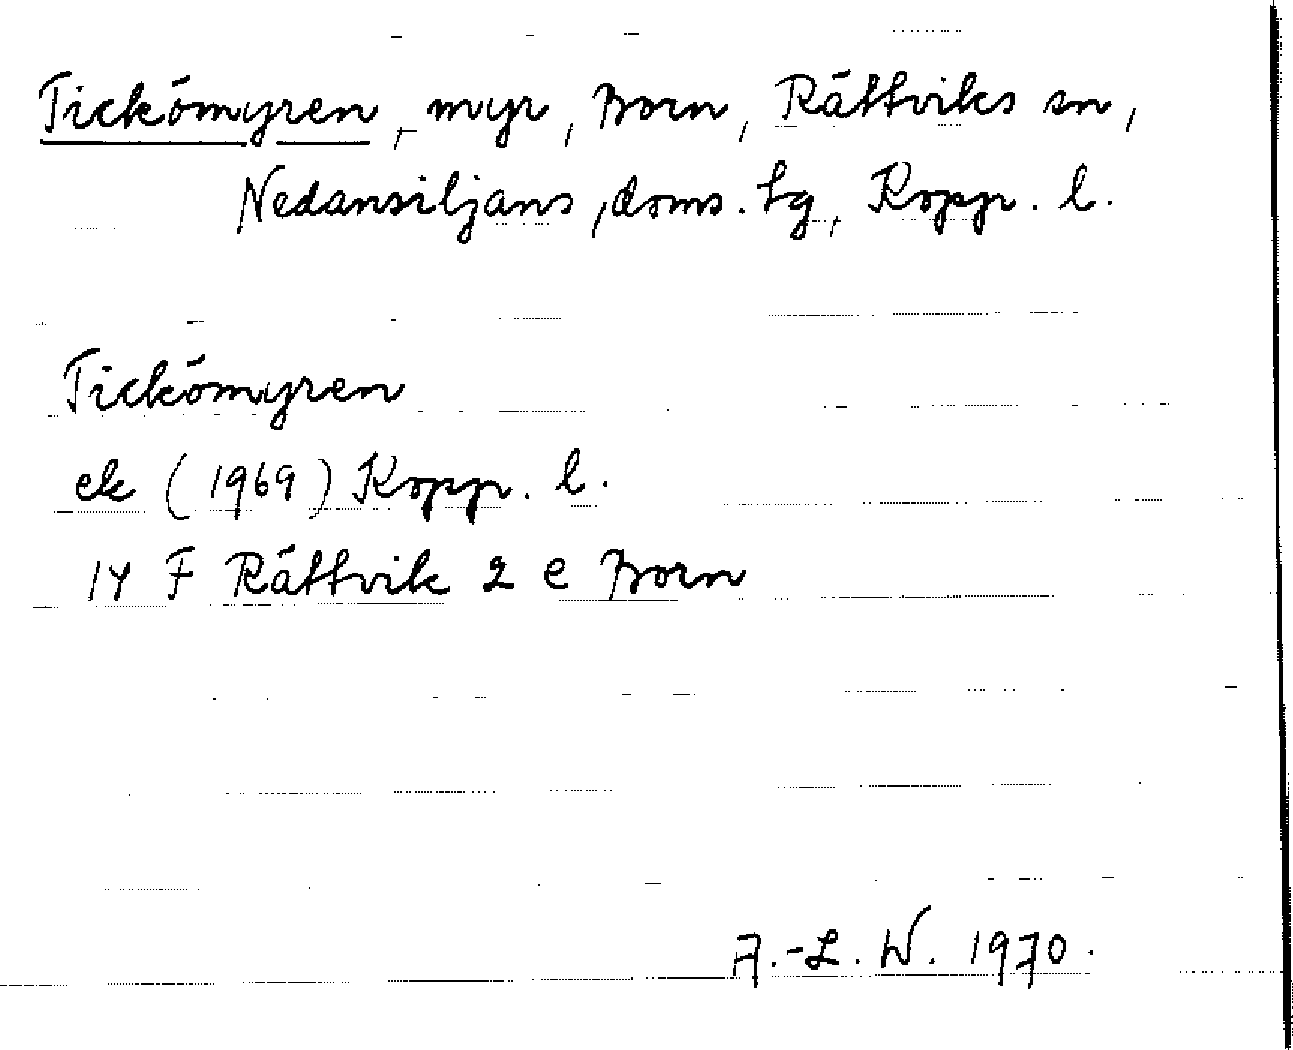 Tickömyren, myr, Born, Rättviks sn,
Nedansiljans, doms. hg, Kopp. l.
Tickömyren
ek (1969) Kopp. l.
14 F Rättvik 2 e Born
A.-L. W. 1970.